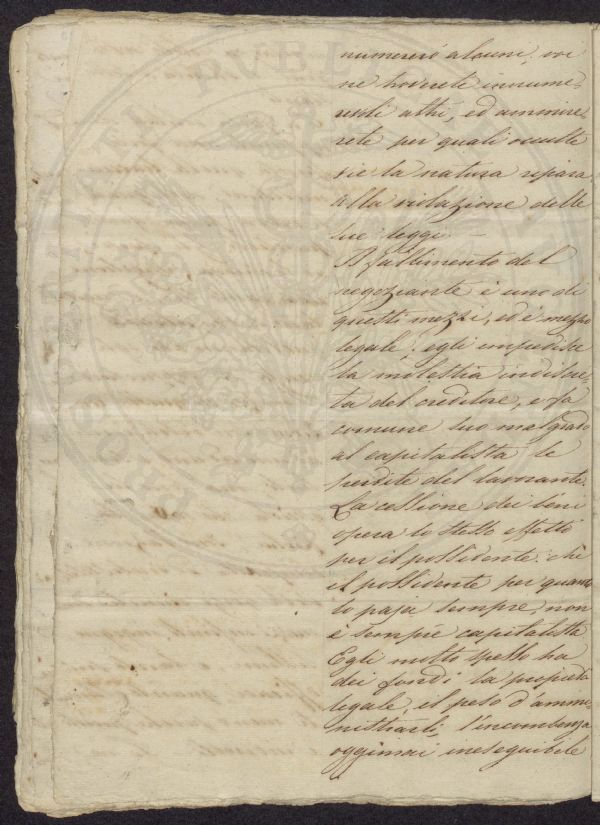 numererò alcuni, voi
ne troverete innume-
revoli altri, ed ammire-
rete per quali occulte
vie la natura ripara
alla violazione delle
sue leggi.
Il fallimento del
negoziante è uno di
questi mezzi, ed è mezzo
legale; egli impedisce
la molestia indiscre-
ta del creditore, e fa
comune suo malgrado
al capitalista le
perdite del lavorante.
La cessione dei beni
opera lo stesso effetto
per il possidente: chè
il possidente per quan-
to paja sempre, non
è sempre capitalista
Egli molto spesso ha
dei fondi la proprietà
legale, il peso d'ammi-
nistrarli, l'incumbenza
oggimai ineseguibile
PROSPERITATI PVBLICAE